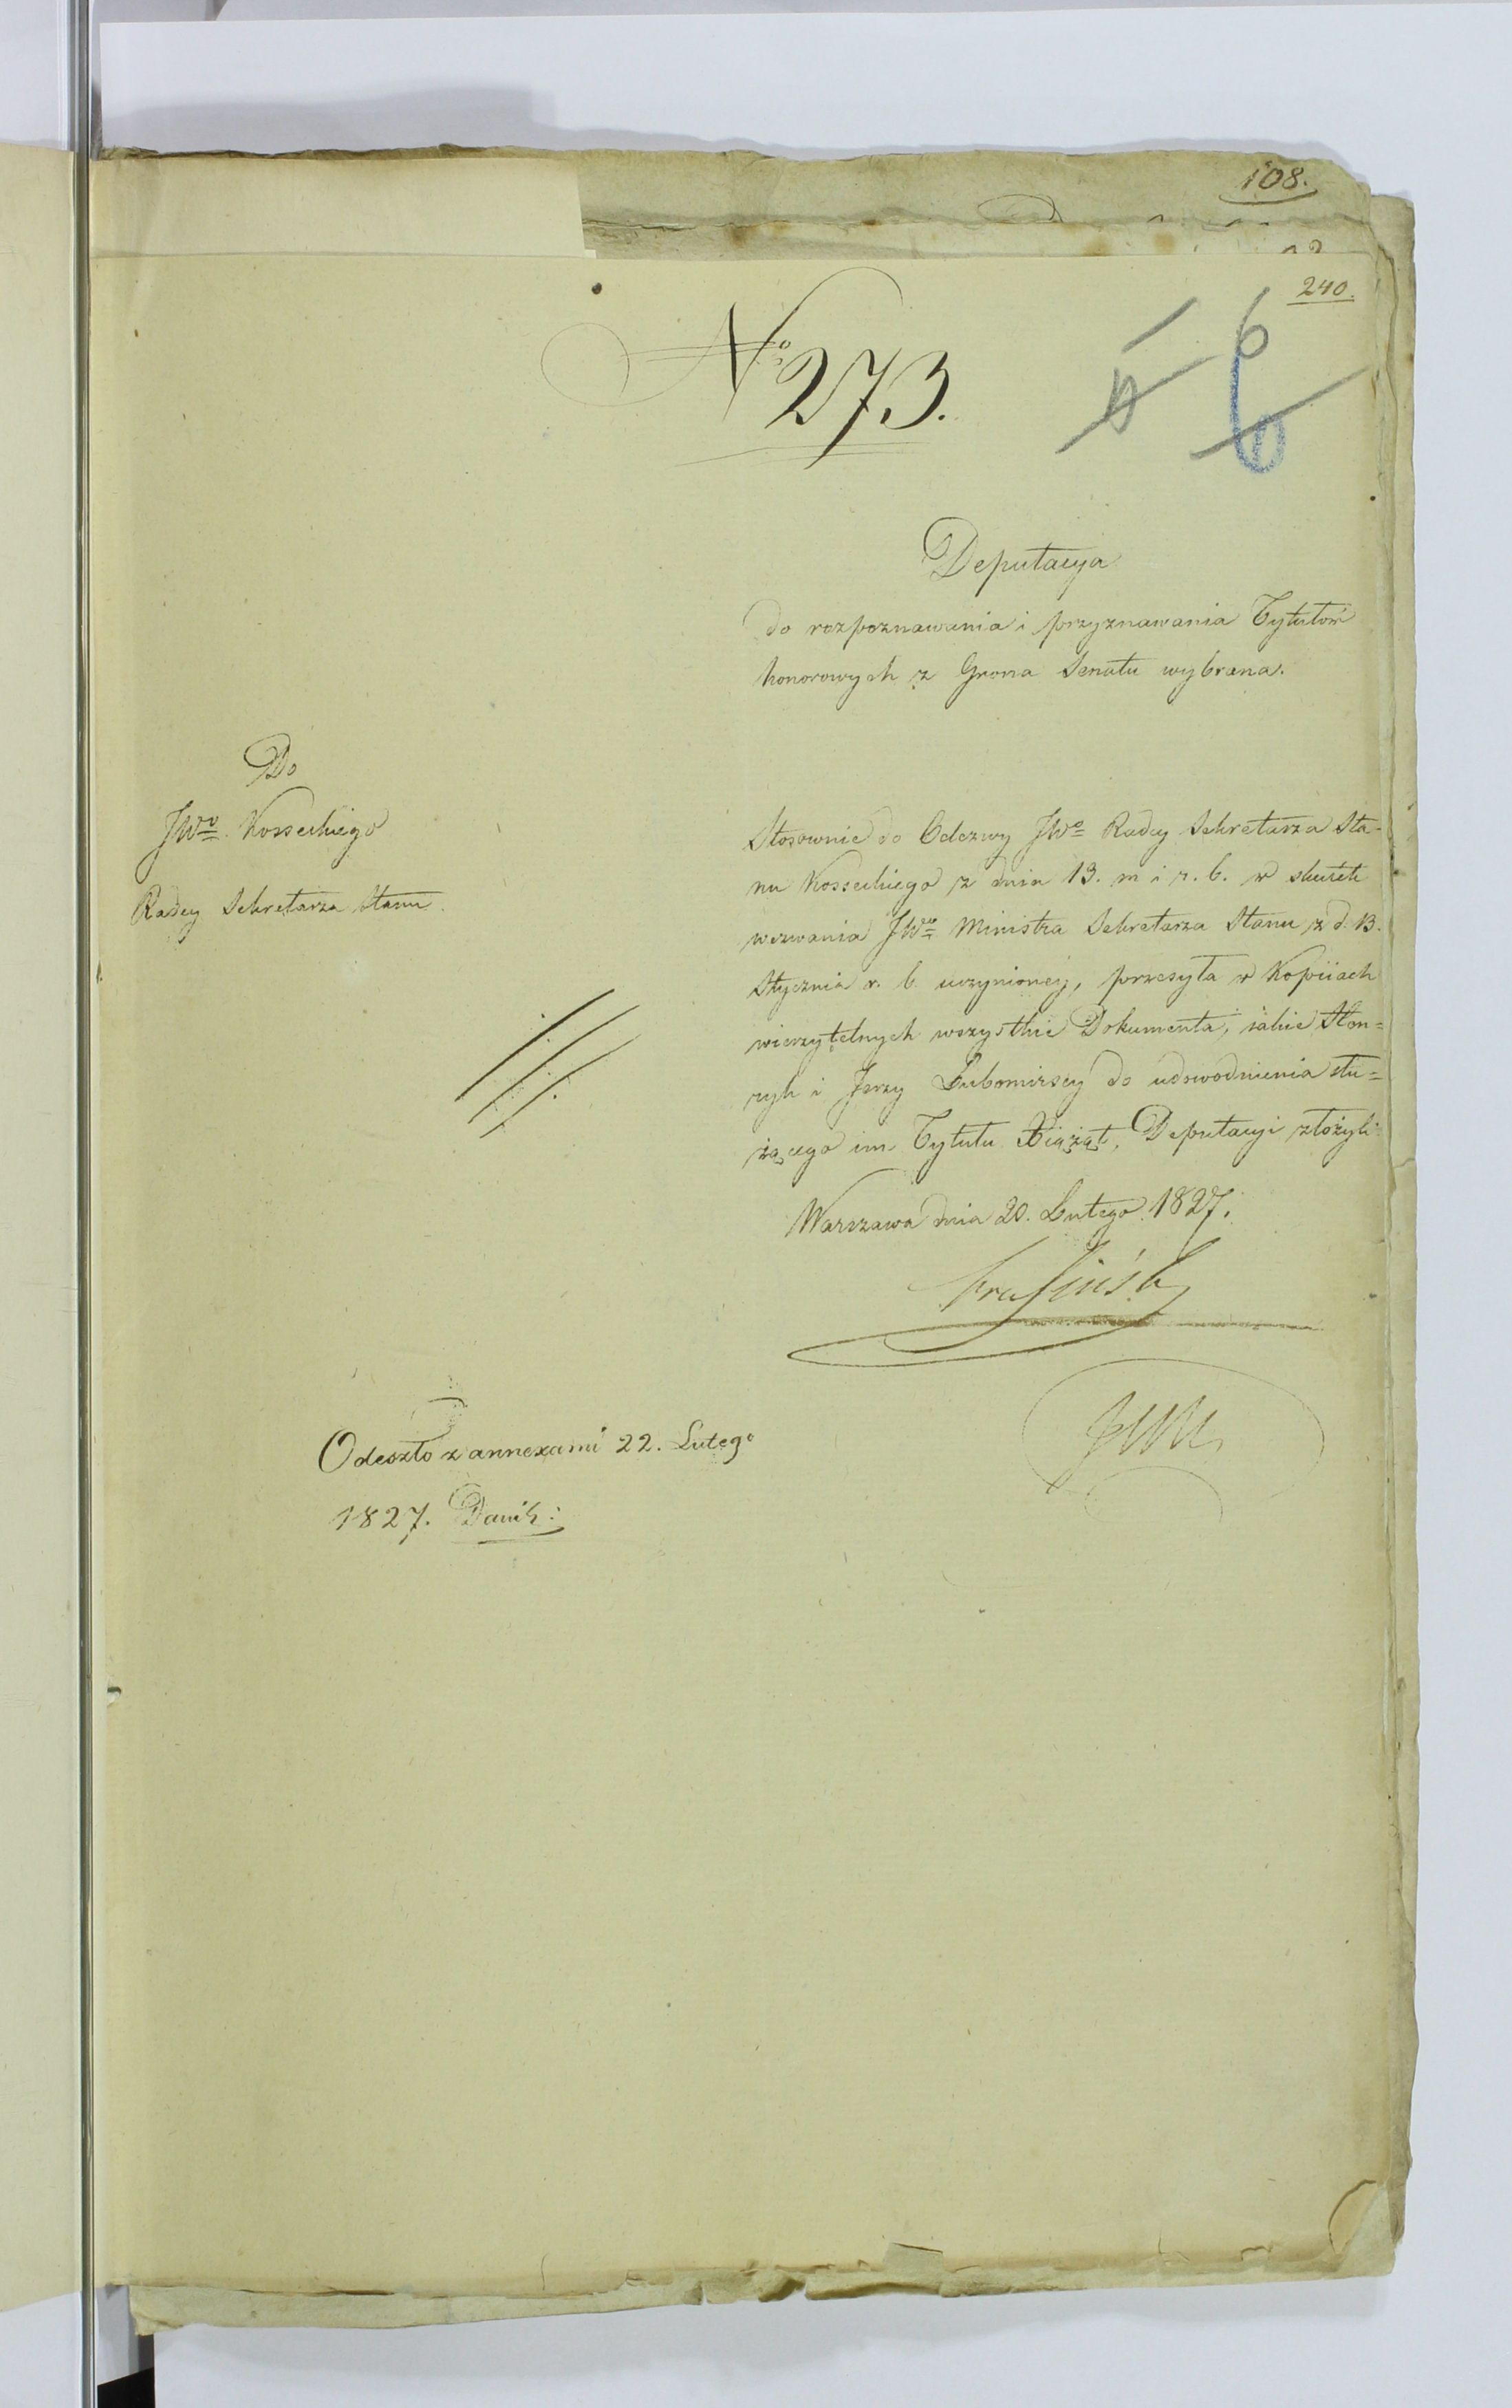 108.
240.
No 273.
6
Deputacya
do rozpoznawania i przyznawania Tytułów
honorowych z Grona Senatu wybrana.
Do
JWo Kosseckiego
Radcy Sekretarza Stanu.
Stosownie do Odezwy JWo Radcy Sekretarza Sta-
nu Kosseckiego z dnia 13. m i r. b. w skutek
wezwania JWgo Ministra Sekretarza Stanu z d. 13.
Stycznia r. b. uczynioney, przesyła w Kopiiach
wierzytelnych wszystkie Dokumenta, iakie Hen=
ryk i Jerzy Lubomirscy do udowodnienia słu=
żącego im Tytułu Xiążąt, Deputacyi złożyli
Warszawa dnia 20. Lutego 1827.
Odeszło z annexami 22. Lutego
1827.